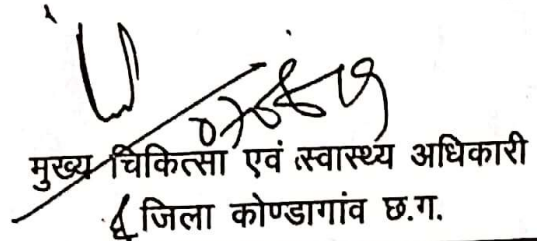 मुख्य चिकित्सा एवं स्वास्थ्य अधिकारी
जिला कोण्डागांव छ.ग.